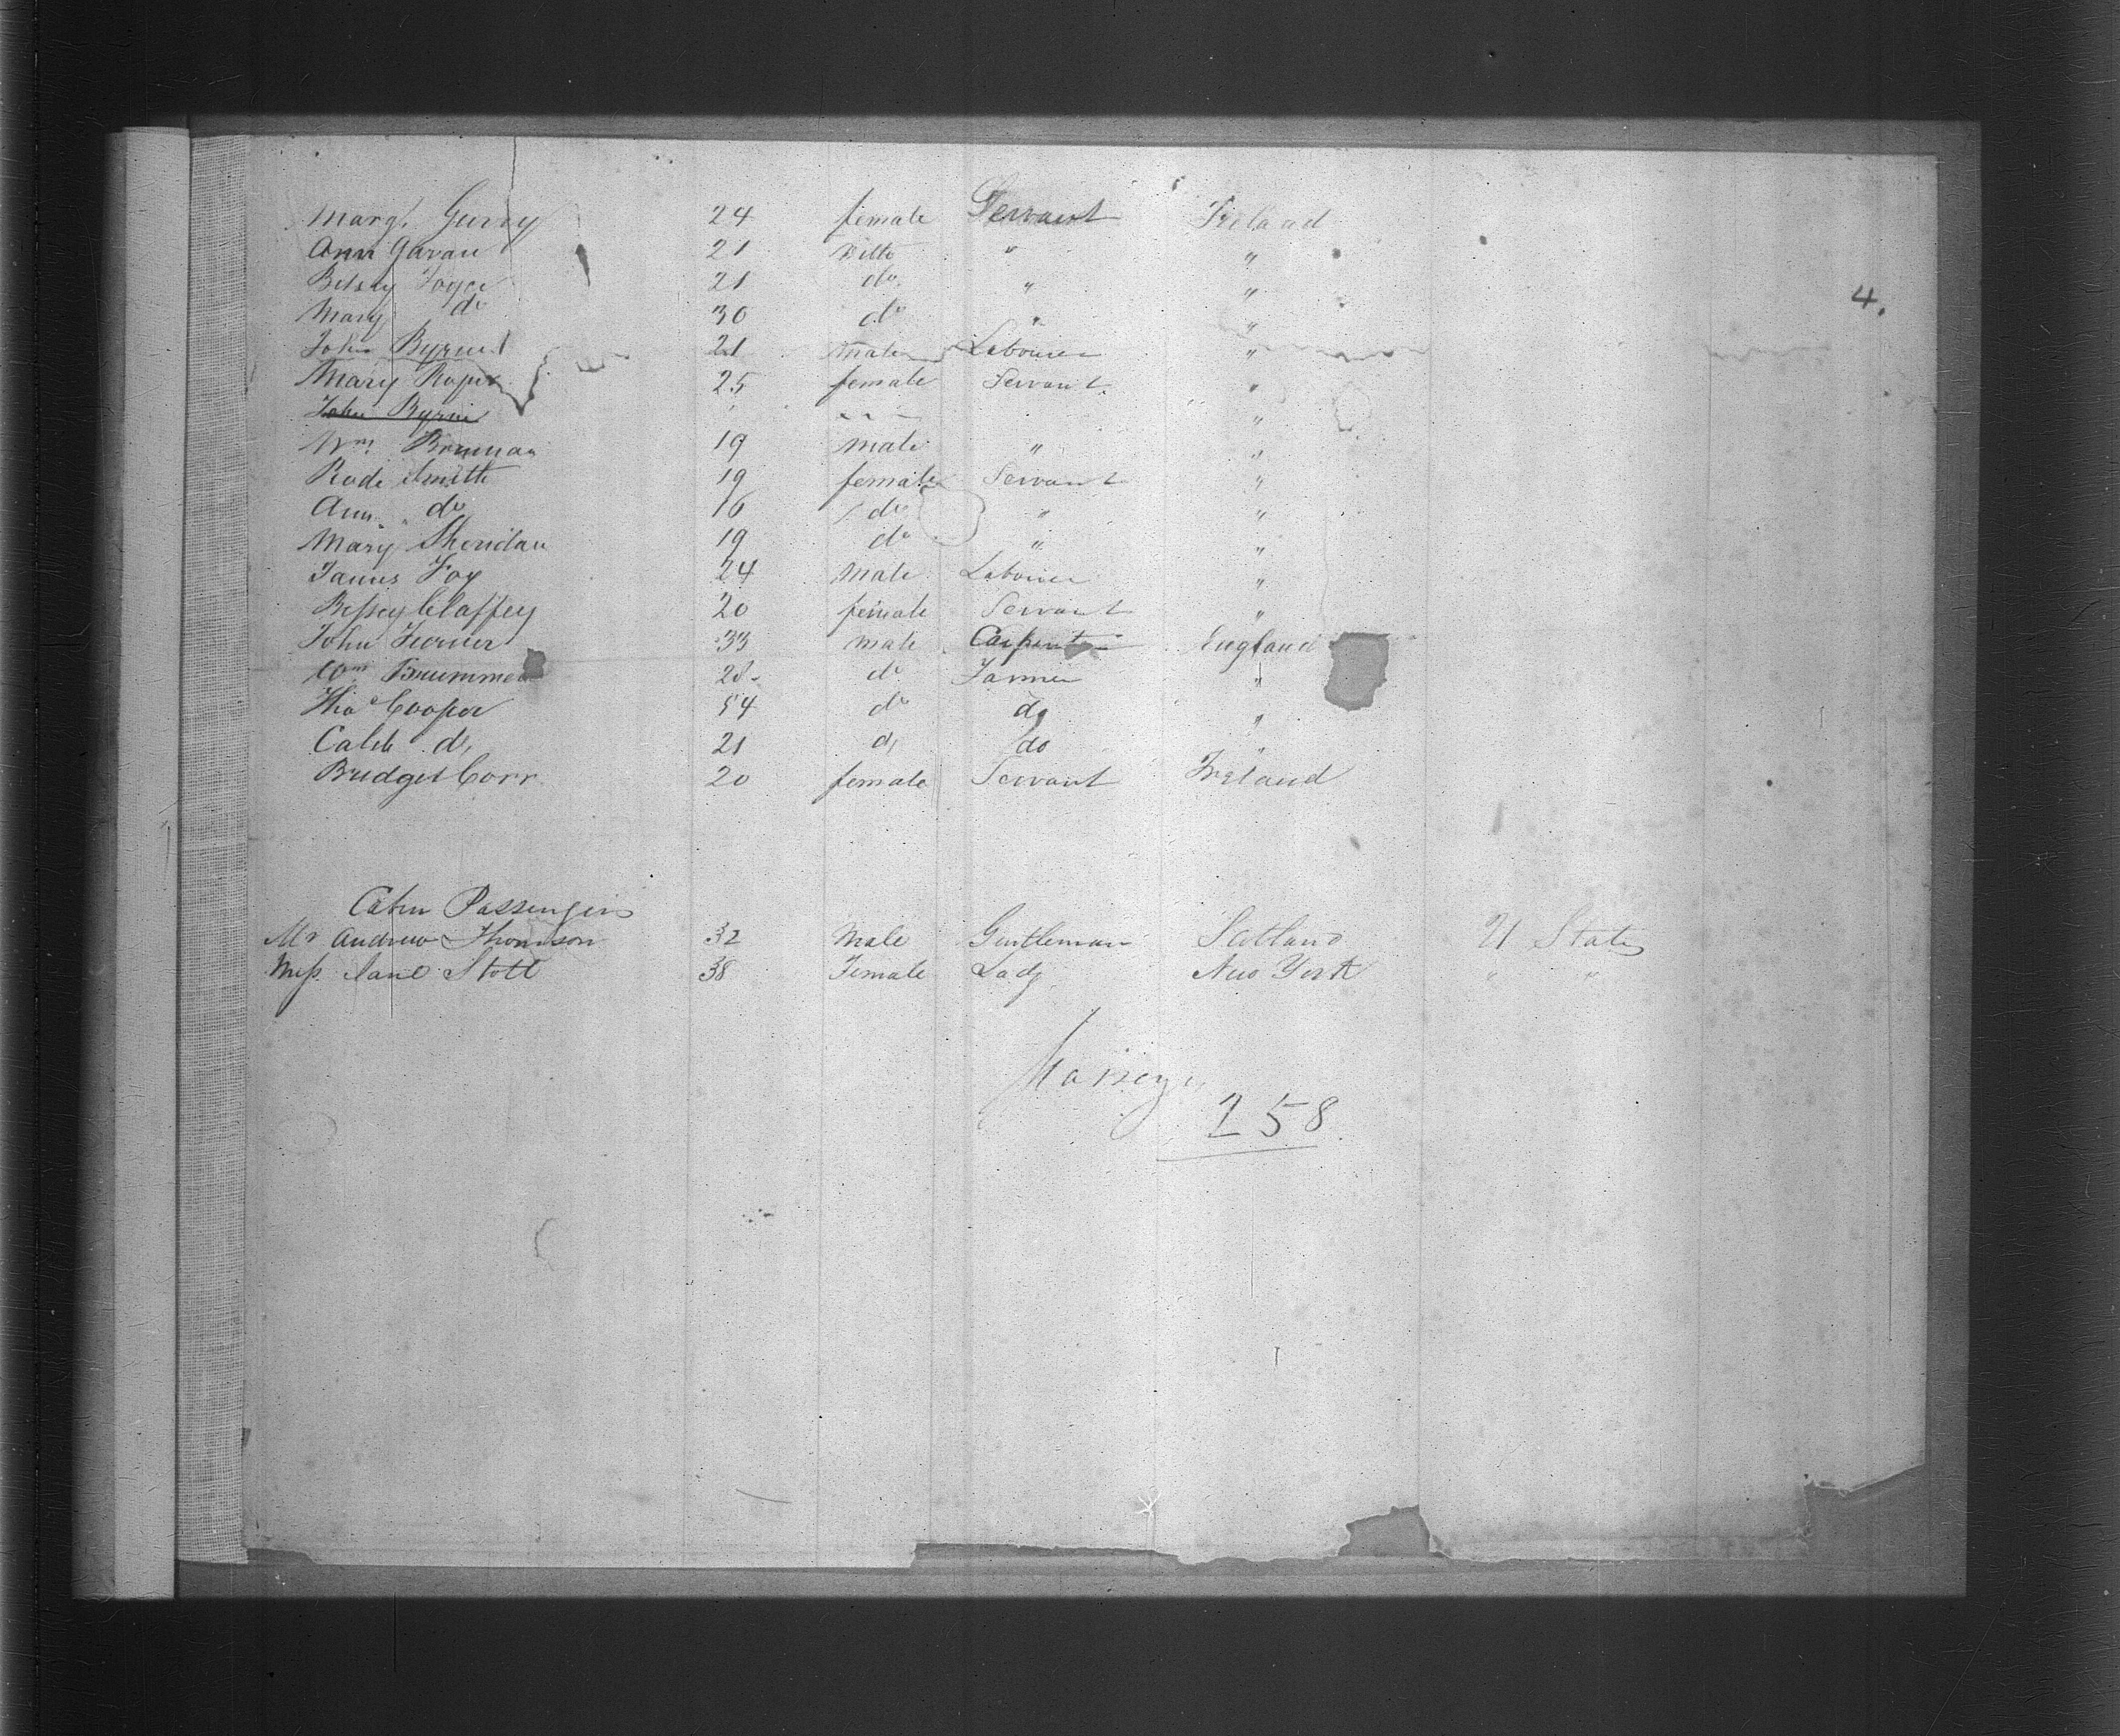 Margt. Gurry 24 female Servant Ireland
Ann Gavan 21 Ditto " "
Betsey Joyce 21 do " "
4.
Mary do 30 do " "
John Byrne 21 male Labourer "
Mary Roper 25 female Servant "
John Byrne "
Wm Brennan 19 male " "
Rode Smith 19 female Servant "
Ann do 16 do " "
Mary Sheridan 19 do " "
James Fox 24 male Labourer "
Bessey Claffey 20 female Servant "
John 33 male Carpenter England
Wm 28 do Farmer "
Thos Cooper 54 do do "
Caleb do 21 do do "
Bridget Corr 20 female Servant Ireland
Cabin Passengers
Mr Andrew Thomson 32 Male Gentleman Scotland U States
Miss Jane Stott 38 Female Lady New York " "
258